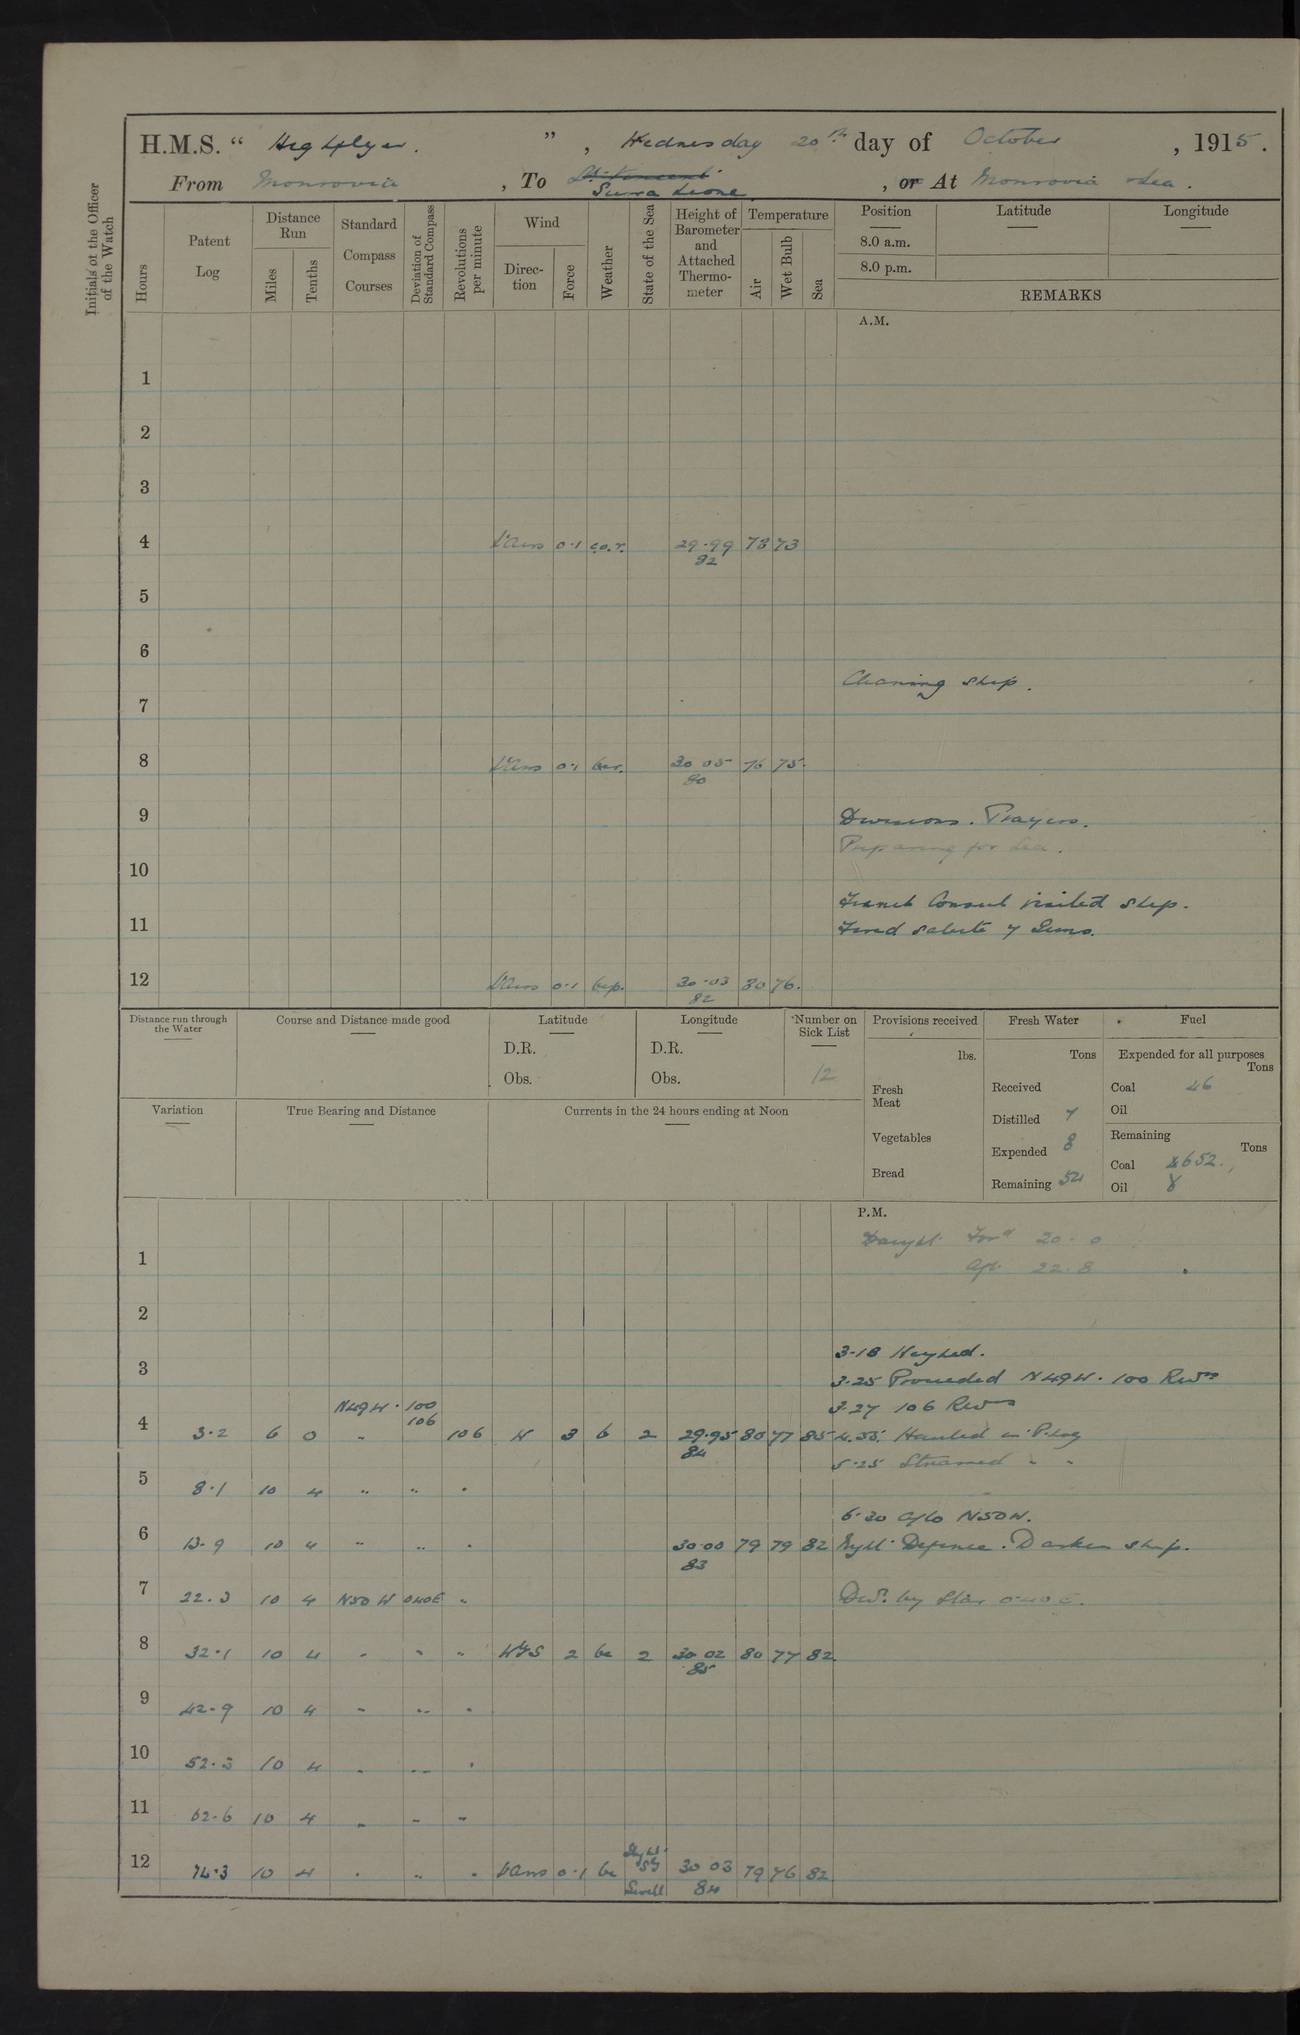 H.M.S. “ Highflyer. ” , Wednesday 20th day of October , 1915.
From Monrovia , To St. Vincent Sierra Leone , or At Monrovia & Sea.
Initials of the Officer of the Watch
Hours Patent Log Distance Run Miles Tenths Standard Compass Courses Deviation of Standard Compass Revolutions per minute Wind Direction Force Weather State of the Sea Height of Barometer and Attached Thermometer Temperature Air Wet Bulb Sea Position Latitude Longitude
8.0 a.m.
8.0 p.m.
REMARKS
A.M.
1
2
3
4 Vars 0-1 29.99 82 73
5
6
Cleaning ship.
7
8 Vars 0-1 bcr. 30.05 80 76 75.
9 Divisions. Prayers.
Preparing for Sea.
10
French Consul visited ship.
11 Fired salute 7 Guns.
12 Vars 0-1 bcp. 30.03 82 80 76.
Distance run through the Water Course and Distance made good Latitude Longitude Number on Sick List Provisions received Fresh Water Fuel
D.R. D.R. lbs. Tons Expended for all purposes Tons
Obs. Obs. 12 Fresh Meat Received Coal 46
Variation True Bearing and Distance Currents in the 24 hours ending at Noon Distilled 7 Oil
Vegetables Expended 8 Remaining Tons
Bread Remaining 54 Coal 652.
Oil 8
P.M.
Draught Ford 20.0
1 Aft 22.8
2
3-18 Weighed.
3 3.25 Proceeded N49W. 100 Revns
N49W. 100 106 3.27 106 Revns
4 3.2 6 0 " 106 W 3 b 2 29.95 84 80 77 85 4.55. Hauled in P. Log
5.25 Streamed " "
5 8.1 10 4 " " "
6.30 A/Co N50W.
6 13.9 10 4 " " " 30.00 83 79 79 82 Night Defence. Darken ship.
7 22.3 10 4 N50W 040E " Devn. by Star 0.40E.
8 32.1 10 4 " " " WyS 2 bc 2 30 02 85 80 77 82.
9 42.9 10 4 " " "
10 52.3 10 4 " " "
11 62.6 10 4 " " "
12 74.3 10 4 " " " Vars 0-1 bc Swell 30 03 84 79 76 82